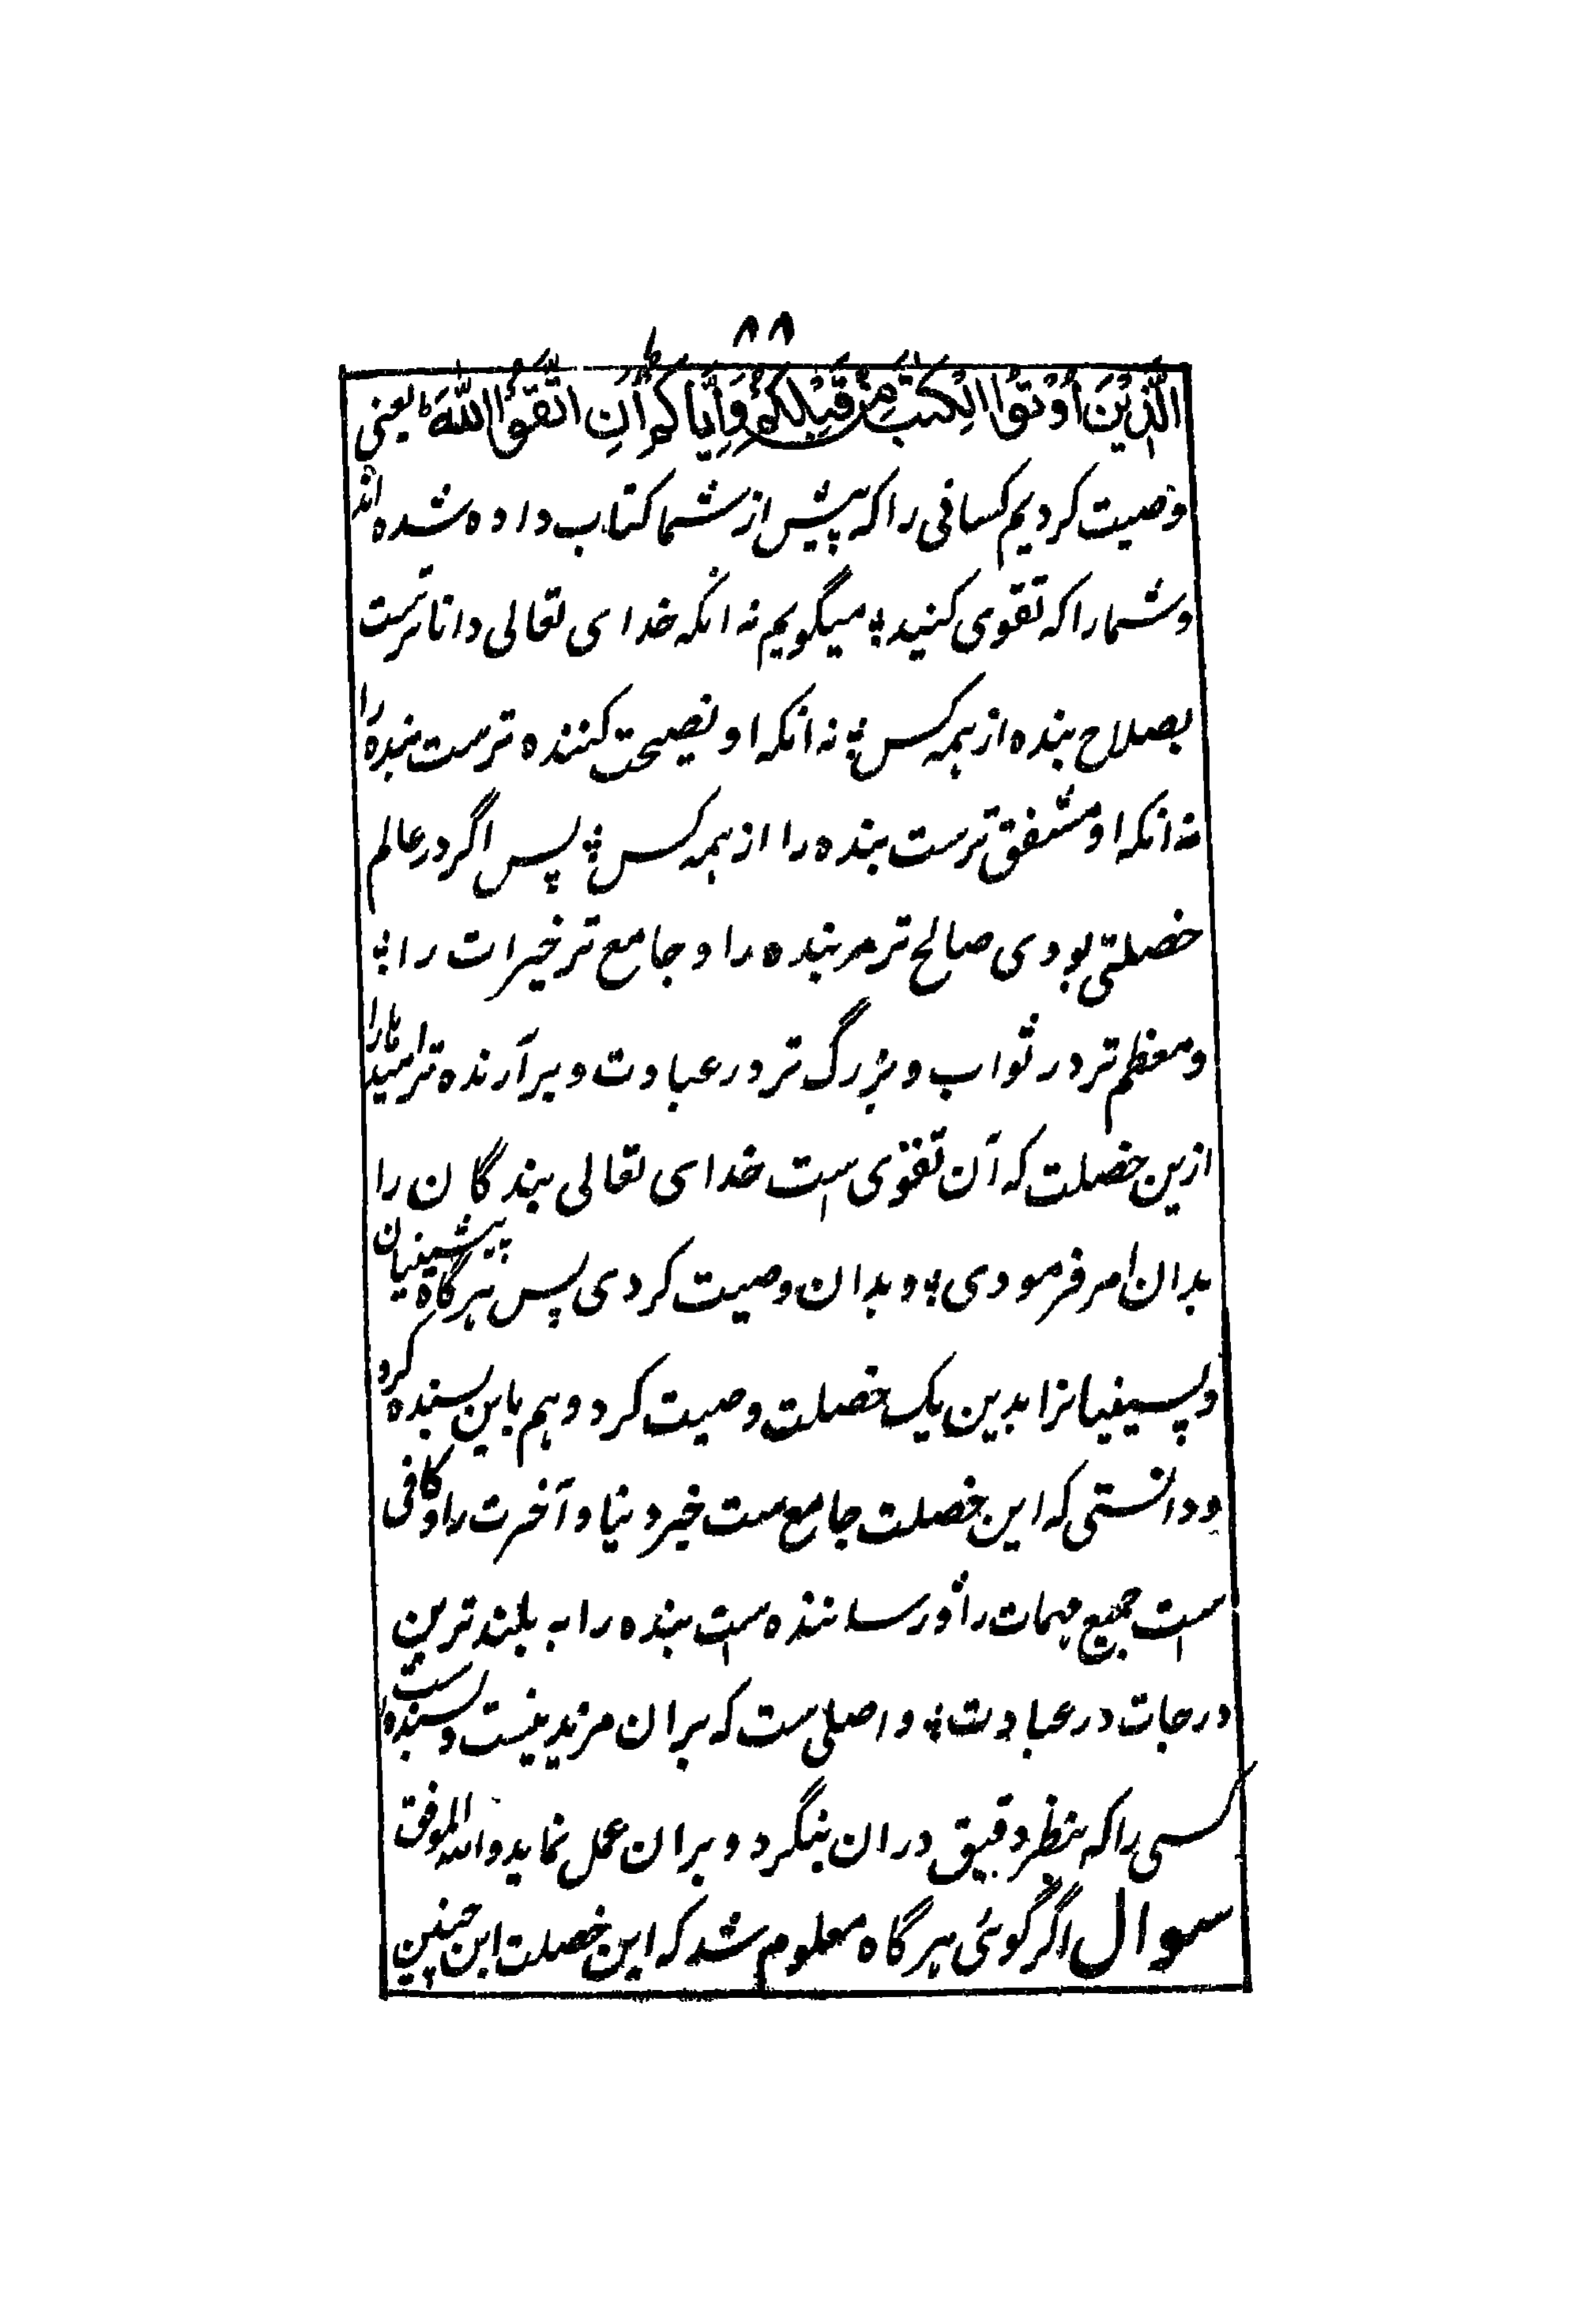 ۸۸
الَّذِیْنَ اُوْتُوا الْکِتٰبَ مِنْ قَبْلِکُمْ وَاِیَّاکُمْ اَنِ اتَّقُوا اللّٰهَ ؕ یعنی
وصیت کردیم کسانی را که پیش از شما کتاب داده شده اند
و شما را که تقوی کنید؛ میگویم نه انکه خدای تعالی داناترست
بصلاح بنده از همه کس؛ نه انکه او نصیحت کننده ترست بنده را
نه انکه او مشفق ترست بنده را از همه کس؛ پس اگر در عالم
خصلتی بودی صالح تر مر بنده را و جامع تر خیرات را؛
و معظم تر در ثواب و بزرگ تر در عبادت و برآرنده تر امیدها را
ازین خصلت که آن تقوی است خدای تعالی بندگان را
بدان امر فرمودی؛ و بدان وصیت کردی پس هرگاه پیشینیان
و پسینیانرا بدین یک خصلت وصیت کرد و هم باین بسنده کرد
و دانستی که این خصلت جامع ست خیر دنیا و آخرت را و کافی
است جمیع مهمات را و رساننده است بنده را به بلندترین
درجات در عبادت؛ و اصلی ست که بران مزید نیست و بسنده است
کسی را که بنظر دقیق دران بنگرد و بران عمل نماید والله الموفق
سوال اگر گوئی هرگاه معلوم شد که این خصلت این چنین